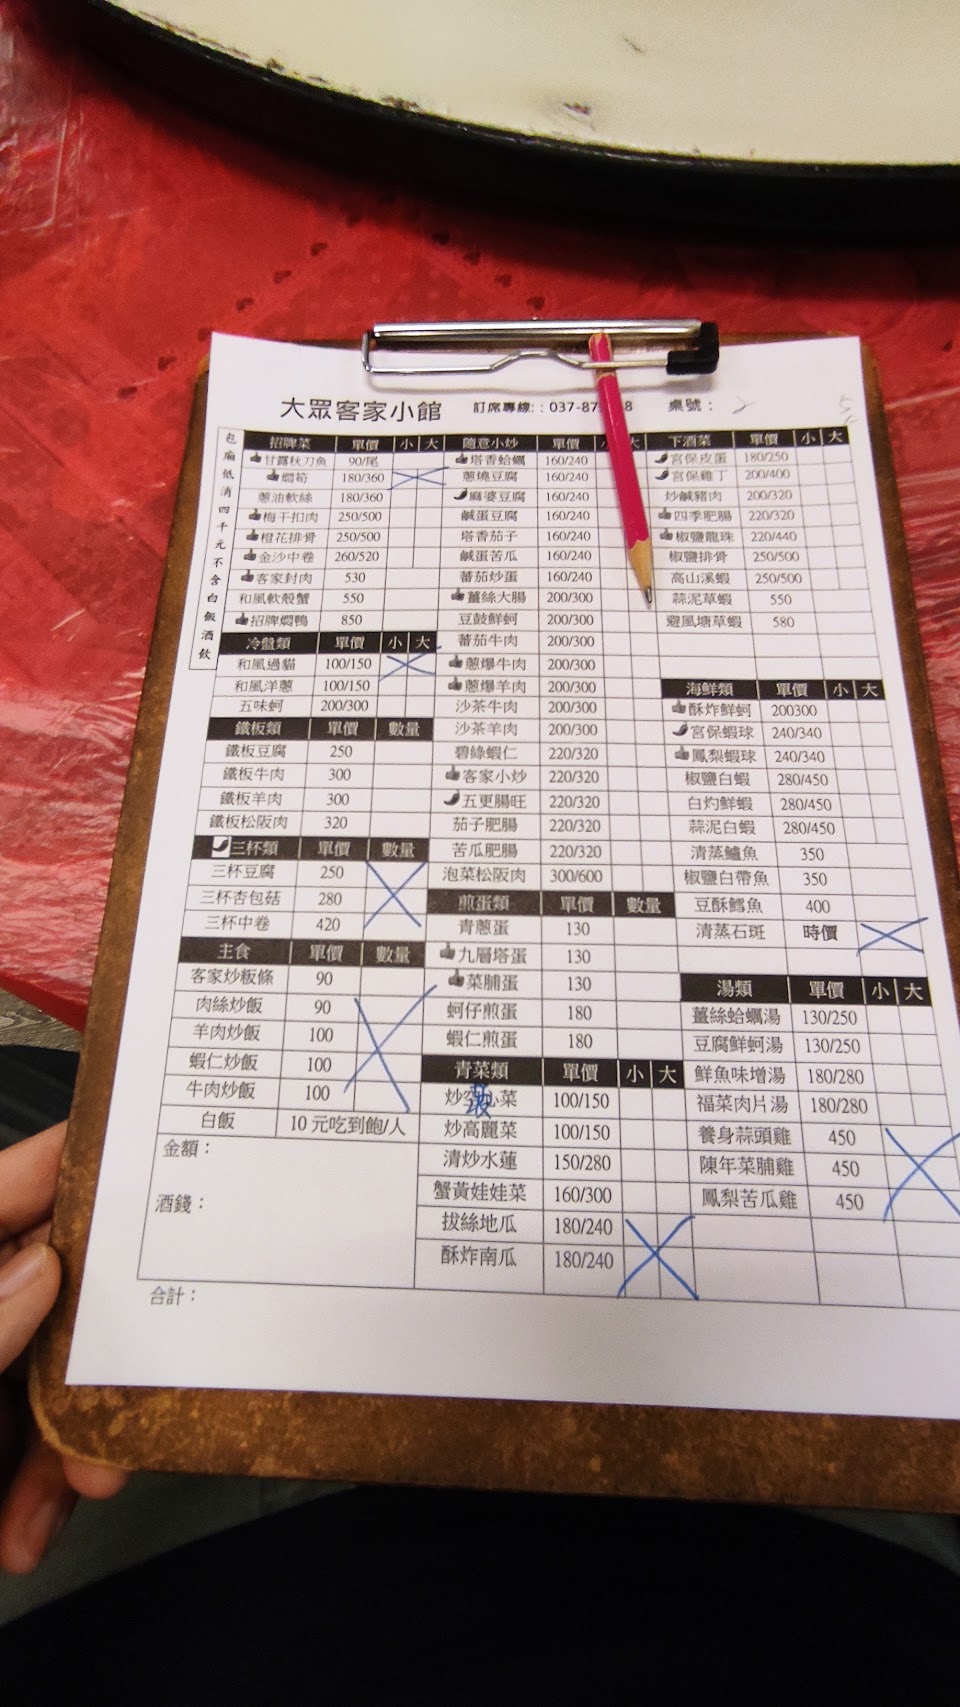 大眾客家小館 訂席專線:: 037-87 8 桌號：
包廂低消四千元不含白飯酒飲
招牌菜 單價 小 大
甘露秋刀魚 90/尾
燜筍 180/360
蔥油軟絲 180/360
梅干扣肉 250/500
橙花排骨 250/500
金沙中卷 260/520
客家封肉 530
和風軟殼蟹 550
招牌燜鴨 850
冷盤類 單價 小 大
和風過貓 100/150
和風洋蔥 100/150
五味蚵 200/300
鐵板類 單價 數量
鐵板豆腐 250
鐵板牛肉 300
鐵板羊肉 300
鐵板松阪肉 320
三杯類 單價 數量
三杯豆腐 250
三杯杏包菇 280
三杯中卷 420
主食 單價 數量
客家炒粄條 90
肉絲炒飯 90
羊肉炒飯 100
蝦仁炒飯 100
牛肉炒飯 100
白飯 10 元吃到飽/人
金額：
酒錢：
合計：
隨意小炒 單價 小 大
塔香蛤蠣 160/240
蔥燒豆腐 160/240
麻婆豆腐 160/240
鹹蛋豆腐 160/240
塔香茄子 160/240
鹹蛋苦瓜 160/240
蕃茄炒蛋 160/240
薑絲大腸 200/300
豆鼓鮮蚵 200/300
蕃茄牛肉 200/300
蔥爆牛肉 200/300
蔥爆羊肉 200/300
沙茶牛肉 200/300
沙茶羊肉 200/300
碧綠蝦仁 220/320
客家小炒 220/320
五更腸旺 220/320
茄子肥腸 220/320
苦瓜肥腸 220/320
泡菜松阪肉 300/600
煎蛋類 單價 數量
青蔥蛋 130
九層塔蛋 130
菜脯蛋 130
蚵仔煎蛋 180
蝦仁煎蛋 180
青菜類 單價 小 大
炒空心菜 100/150
炒高麗菜 100/150
清炒水蓮 150/280
蟹黃娃娃菜 160/300
拔絲地瓜 180/240
酥炸南瓜 180/240
下酒菜 單價 小 大
宮保皮蛋 180/250
宮保雞丁 200/400
炒鹹豬肉 200/320
四季肥腸 220/320
椒鹽龍珠 220/440
椒鹽排骨 250/500
高山溪蝦 250/500
蒜泥草蝦 550
避風塘草蝦 580
海鮮類 單價 小 大
酥炸鮮蚵 200300
宮保蝦球 240/340
鳳梨蝦球 240/340
椒鹽白蝦 280/450
白灼鮮蝦 280/450
蒜泥白蝦 280/450
清蒸鱸魚 350
椒鹽白帶魚 350
豆酥鱈魚 400
清蒸石斑 時價
湯類 單價 小 大
薑絲蛤蠣湯 130/250
豆腐鮮蚵湯 130/250
鮮魚味增湯 180/280
福菜肉片湯 180/280
養身蒜頭雞 450
陳年菜脯雞 450
鳳梨苦瓜雞 450